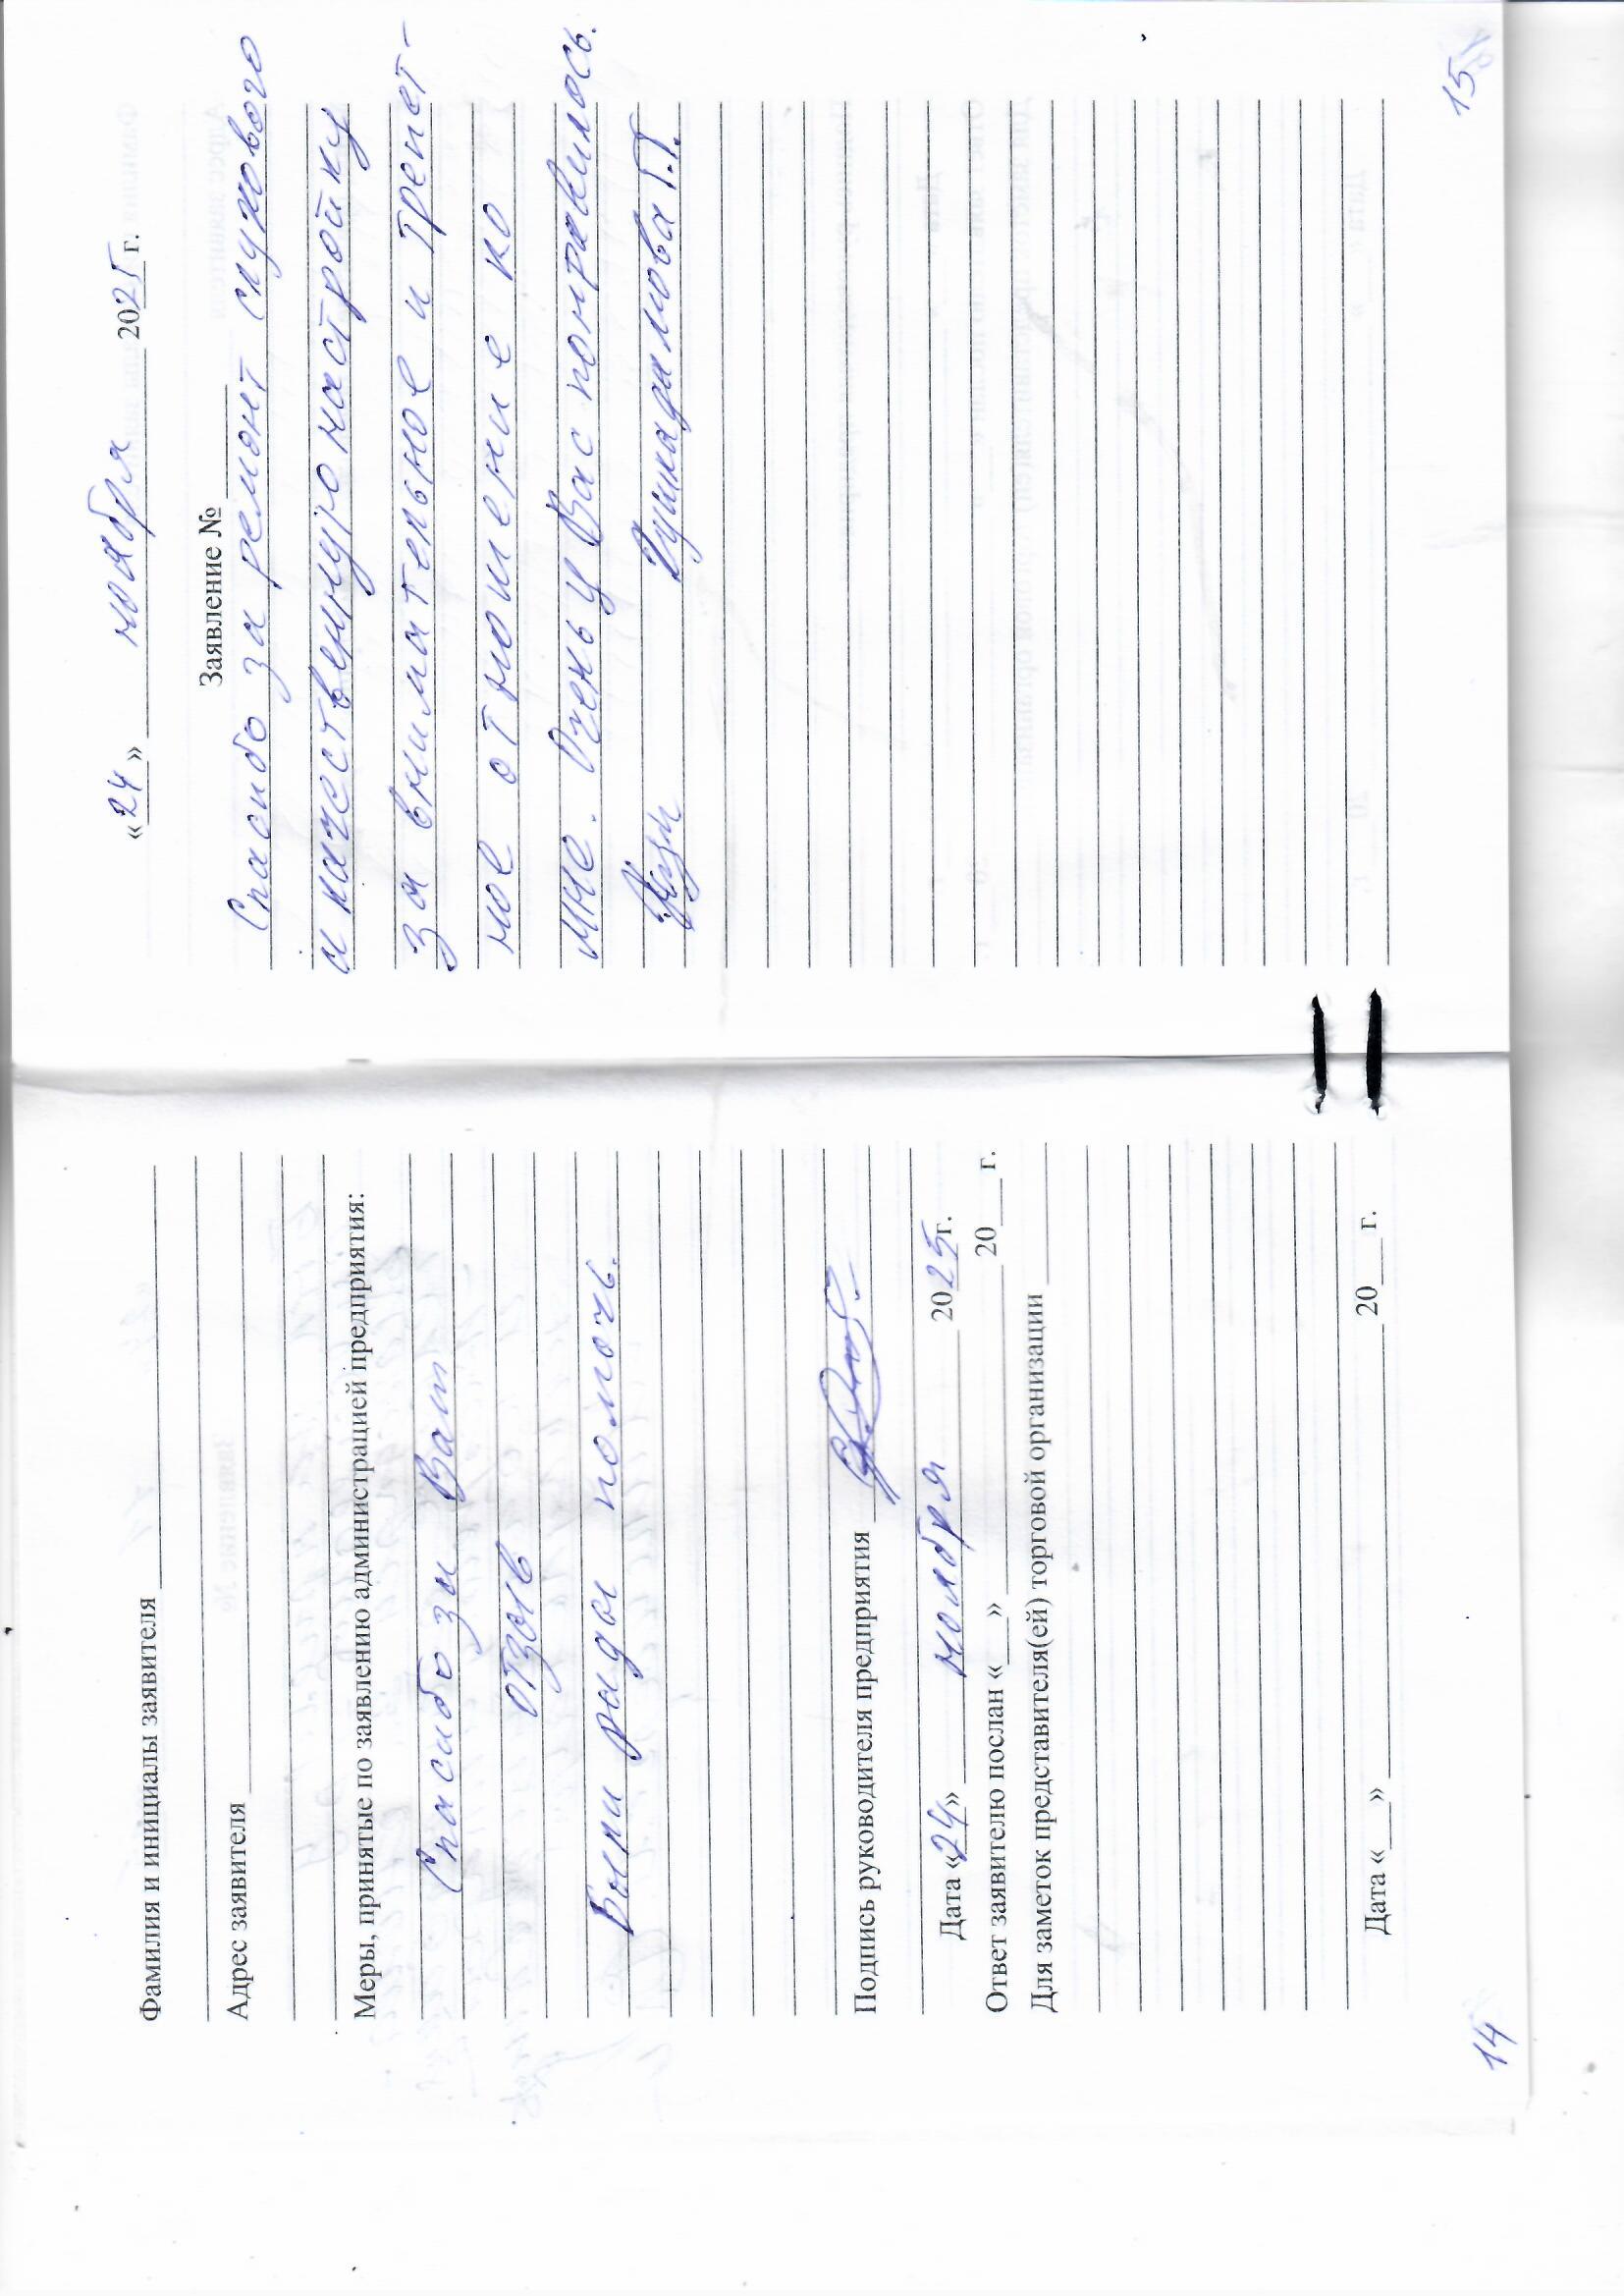 Фамилия и инициалы заявителя
Адрес заявителя
Меры, принятые по заявлению администрацией предприятия:
Спасибо за Ваш
отзыв
Были рады помочь.
Подпись руководителя предприятия
Дата «24» ноября 2025г.
Ответ заявителю послан «__» ____ 20__ г.
Для заметок представителя(ей) торговой организации
Дата «__» ____ 20__ г.
14
«24» ноября 2025 г.
Заявление №
Спасибо за ремонт слухового
и качественную настройку
за внимательное и трепет-
ное отношение ко
мне. Очень у Вас понравилось.
Г.Г.
15